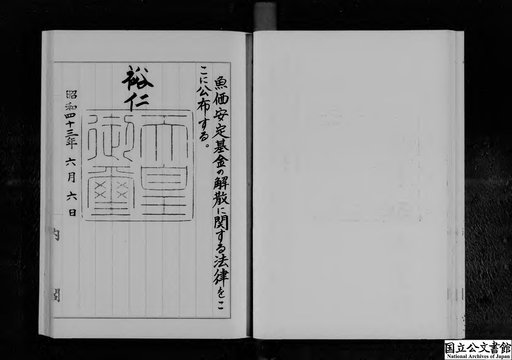 魚価安定基金の解散に関する法律をこ
こに公布する。
裕仁
天皇
御璽
昭和四十三年六月六日
内閣
国立公文書館
National Archives of Japan